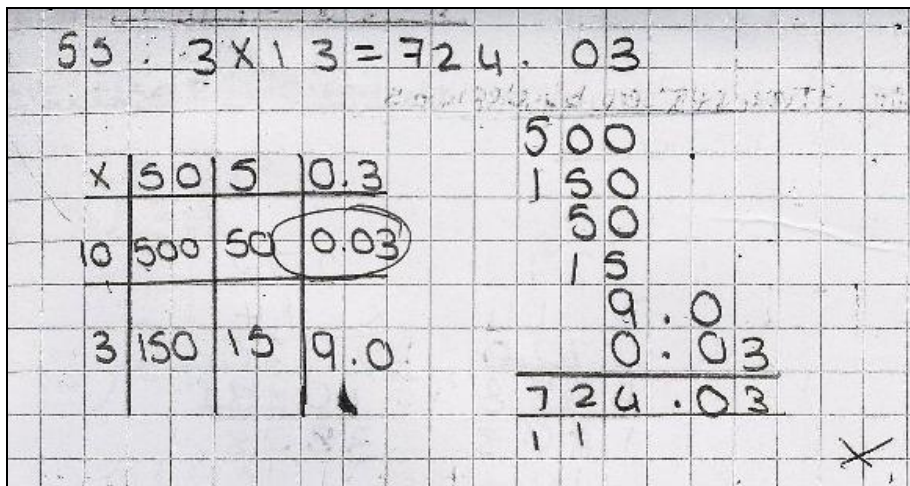 55.3×13=724.03
× 50 5 0.3
10 500 50 0.03
3 150 15 9.0
500
150
50
15
9.0
0.03
724.03
1 1